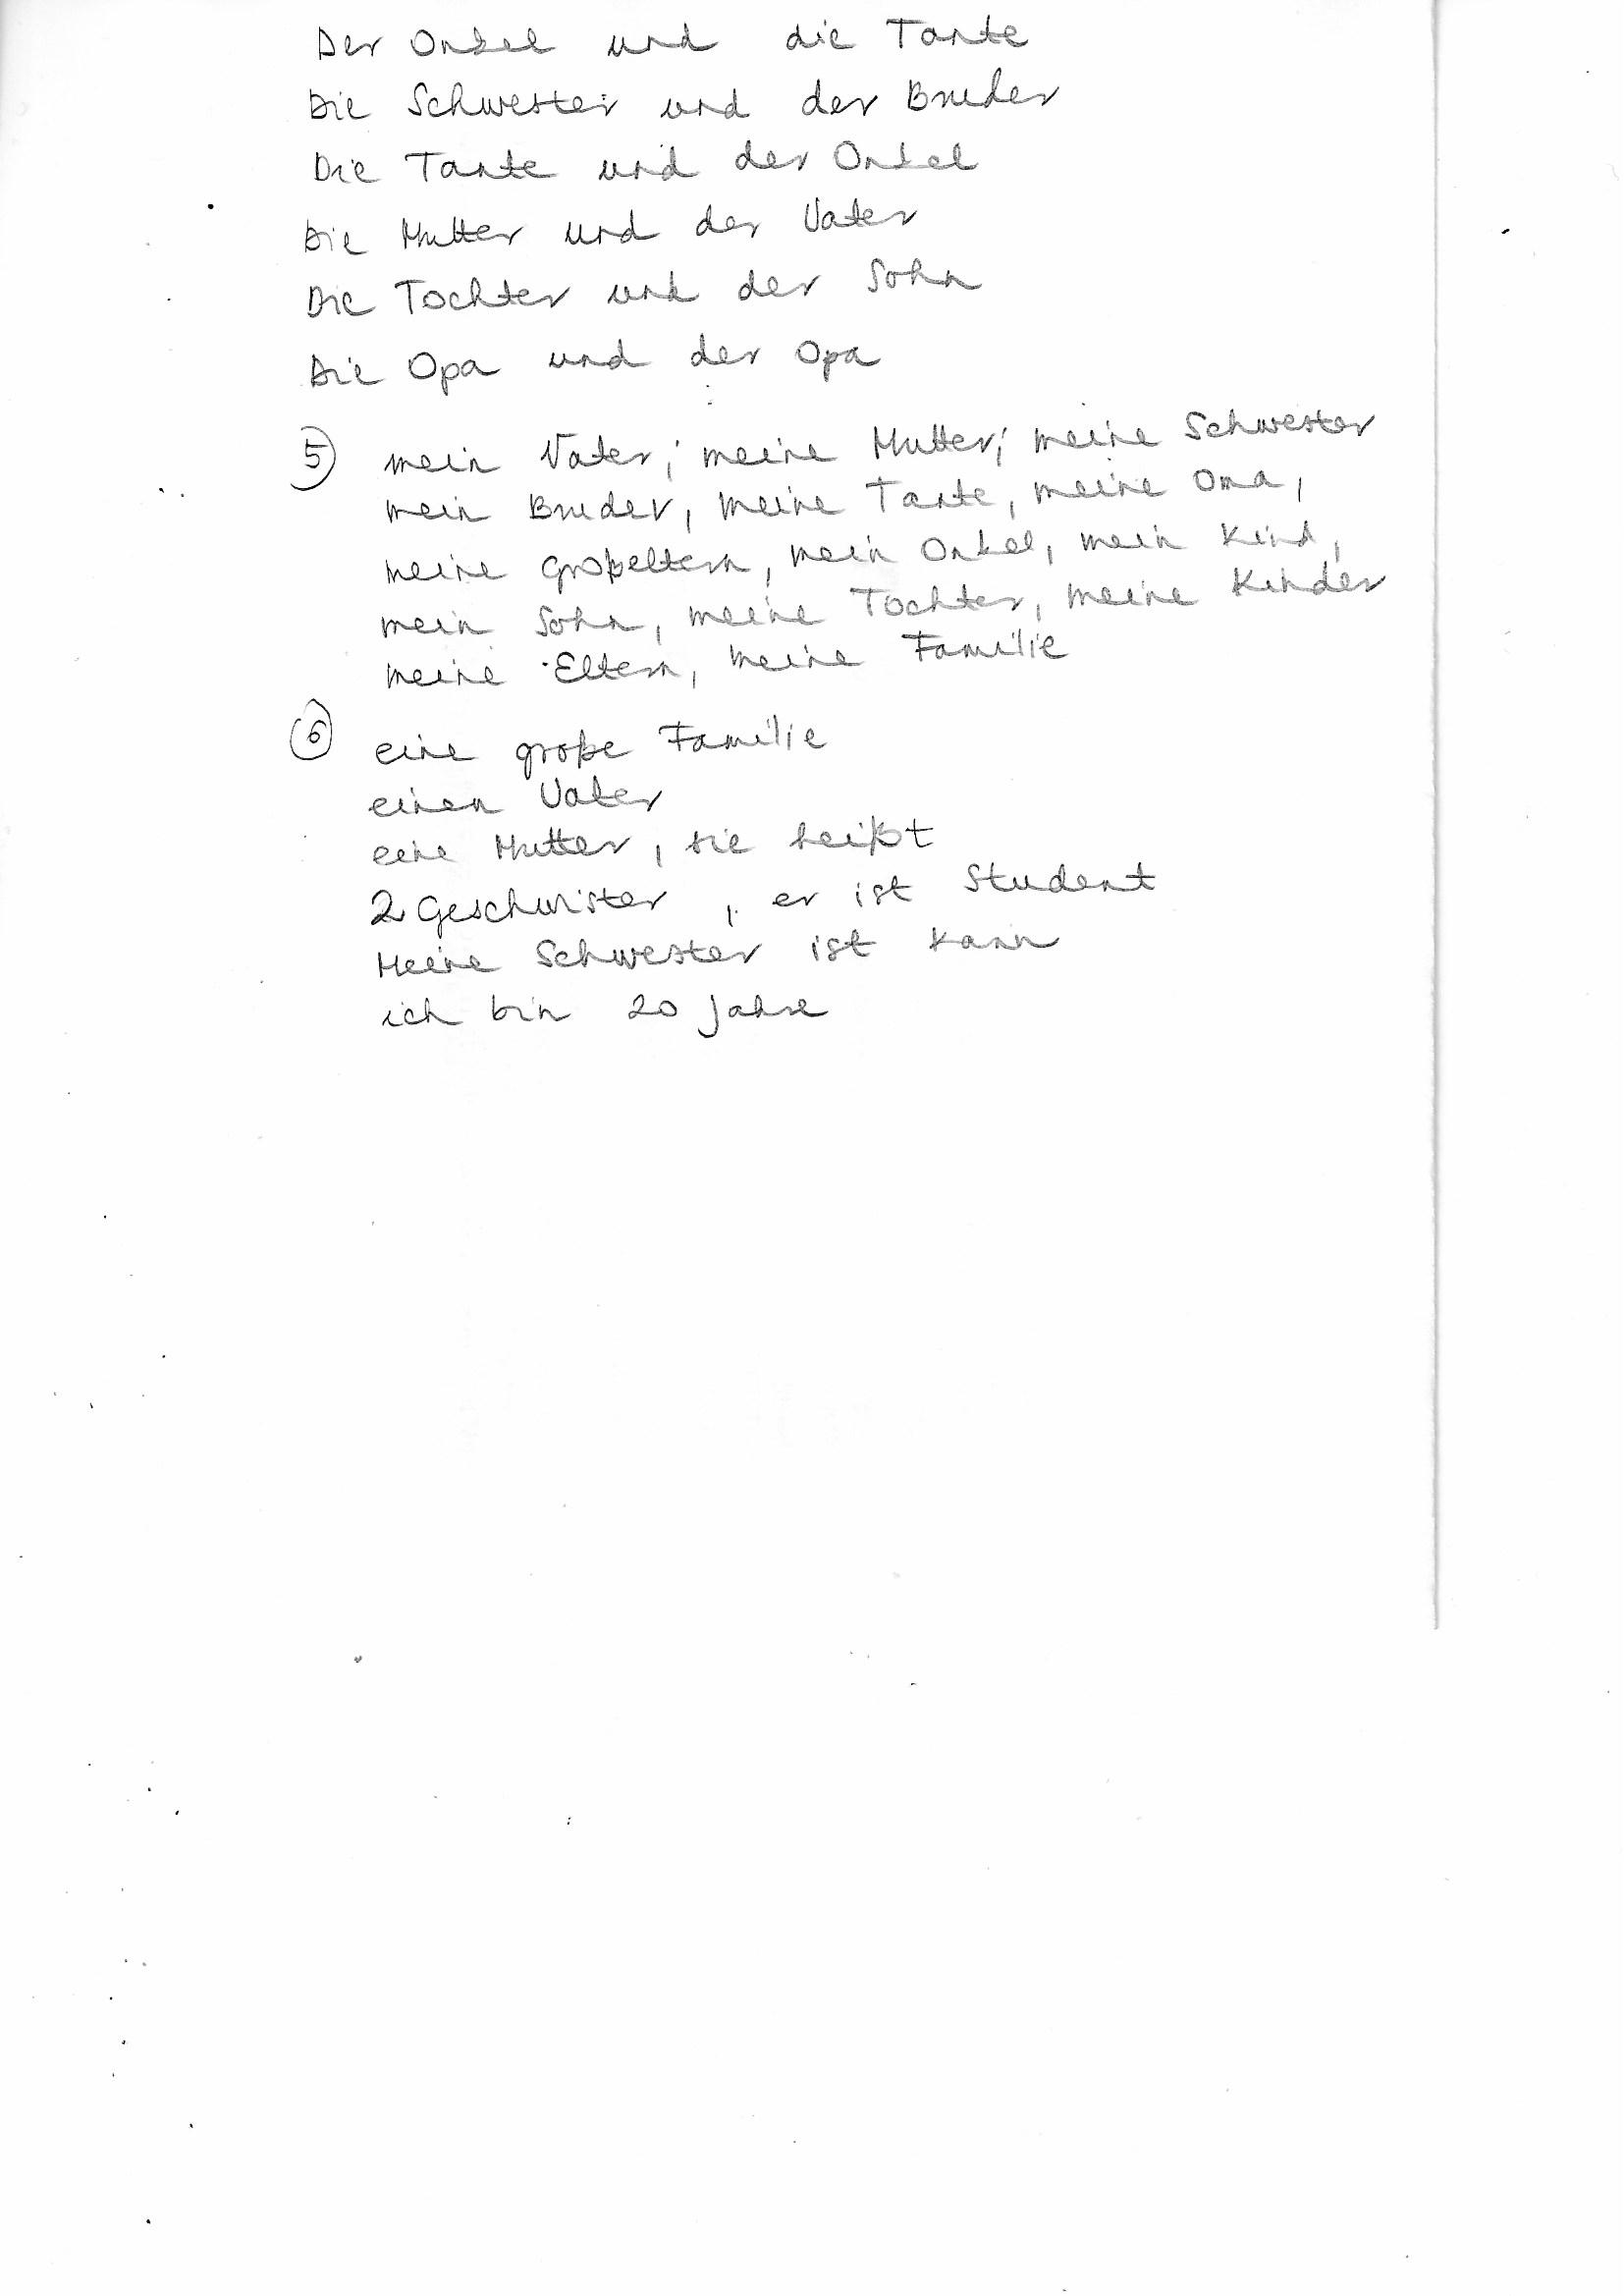 Der Onkel und die Tante
Die Schwester und der Bruder
Die Tante und der Onkel
Die Mutter und der Vater
Die Tochter und der Sohn
Die Opa und der Opa
5) mein Vater, meine Mutter, meine Schwester
mein Bruder, meine Tante, meine Oma,
meine Großeltern, mein Onkel, mein Kind,
mein Sohn, meine Tochter, meine Kinder
meine Eltern, meine Familie
6 eine große Familie
einen Vater
eine Mutter, sie heißt
2 Geschwister, er ist Student
Meine Schwester ist kann
ich bin 20 Jahre